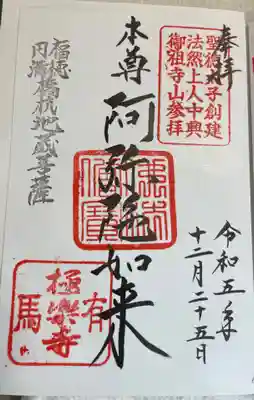 奉拝
聖徳太子創建
法然上人中興
御祖寺山参拝
本尊 阿弥陀如来
福徳
円満 橋杭地蔵菩薩
佛法
僧寶
令和五年
十二月二十五日
有
極楽寺
馬